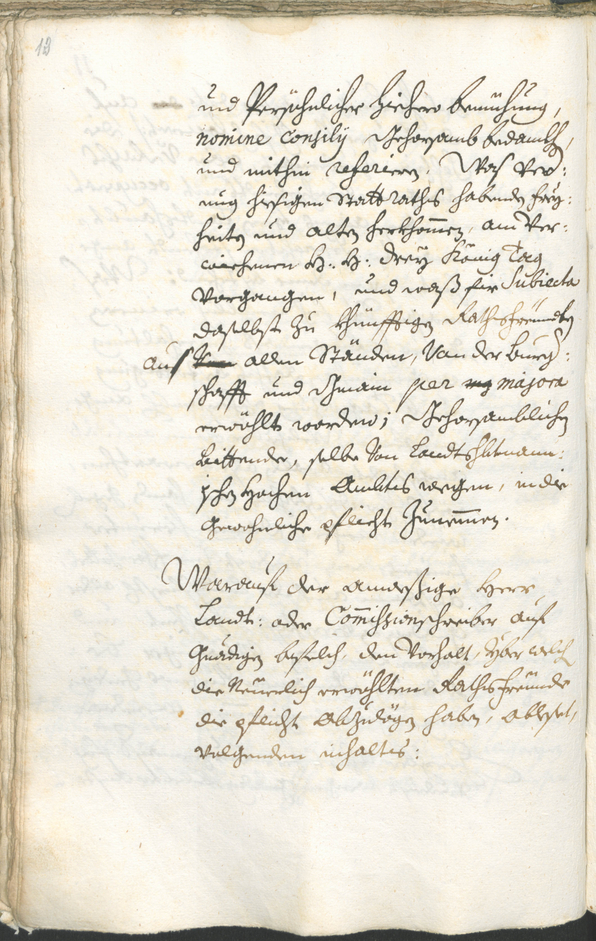 12
und Persöhnlicher hiehero bemühung,
nomine consilij Gehorsamb bedankh,
und mithin referiern. Was Ver:
mug hiesigen Stattraths habenden frey:
heiten und alten herkhommen, am Ver:
wichenen H: H: drey König Tag
Vorgangen, und waß für Subiecta
daselbst zu khünfftigen Rathsfreundten
auß allen Ständen, Von der Burg:
schafft und Gmain per majora
erwöhlt worden; Gehorsamblichen
bittende, selbe Von Landtshbtmann:
schen Hochen Ambts wegen, in die
Gewohnliche pflicht Zunemmen.
Warauf der anweßige Herr
Landt: oder Commissionschreiber auf
Gnädigen befelch, den Vorhalt, yber welch
die Neuerlich erwöhlten Rathsfreunde
die pflicht Abzulögen haben, ableset,
volgenden inhalts: